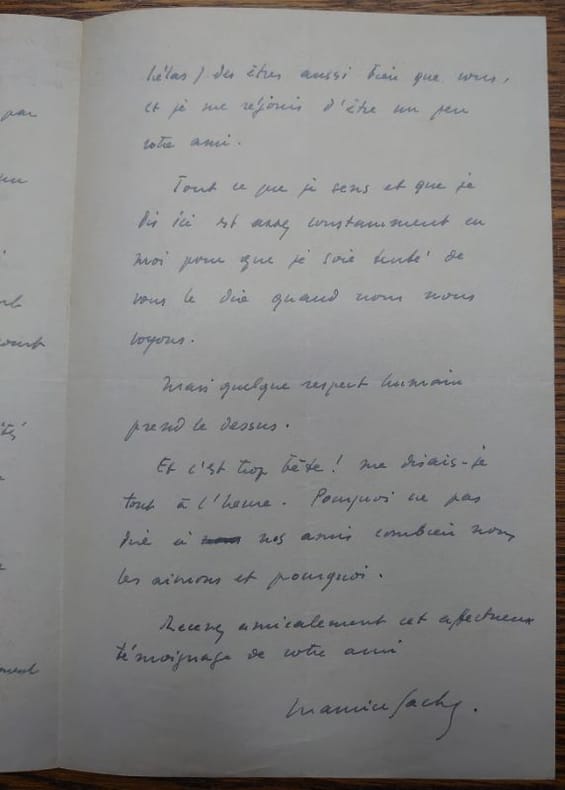 hélas) des êtres aussi bien que vous,
et je me réjouis d'être un peu
votre ami.
Tout ce que je sens et que je
dis ici est assez constamment en
moi pour que je sois tenté de
vous le dire quand nous nous
voyons.
Mais quelque respect humain
prend le dessus.
Et c'est trop bête! me disais-je
tout à l'heure. Pourquoi ne pas
dire à nos amis combien nous
les aimons et pourquoi.
Recevez amicalement cet affectueux
témoignage de votre ami
Maurice Sachs.
par